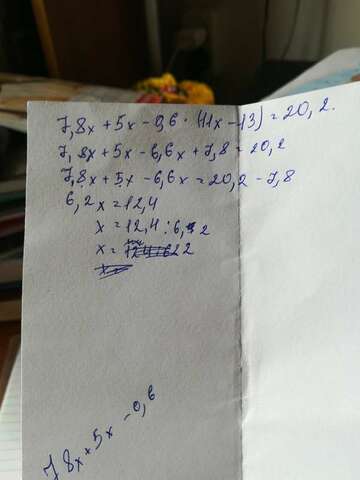 7,8x + 5x - 0,6 · (11x - 13) = 20,2.
7,8x + 5x - 6,6x + 7,8 = 20,2
7,8x + 5x - 6,6x = 20,2 - 7,8
6,2x = 12,4
x = 12,4 : 6,2
x = 2
7 8x + 5x - 0,6